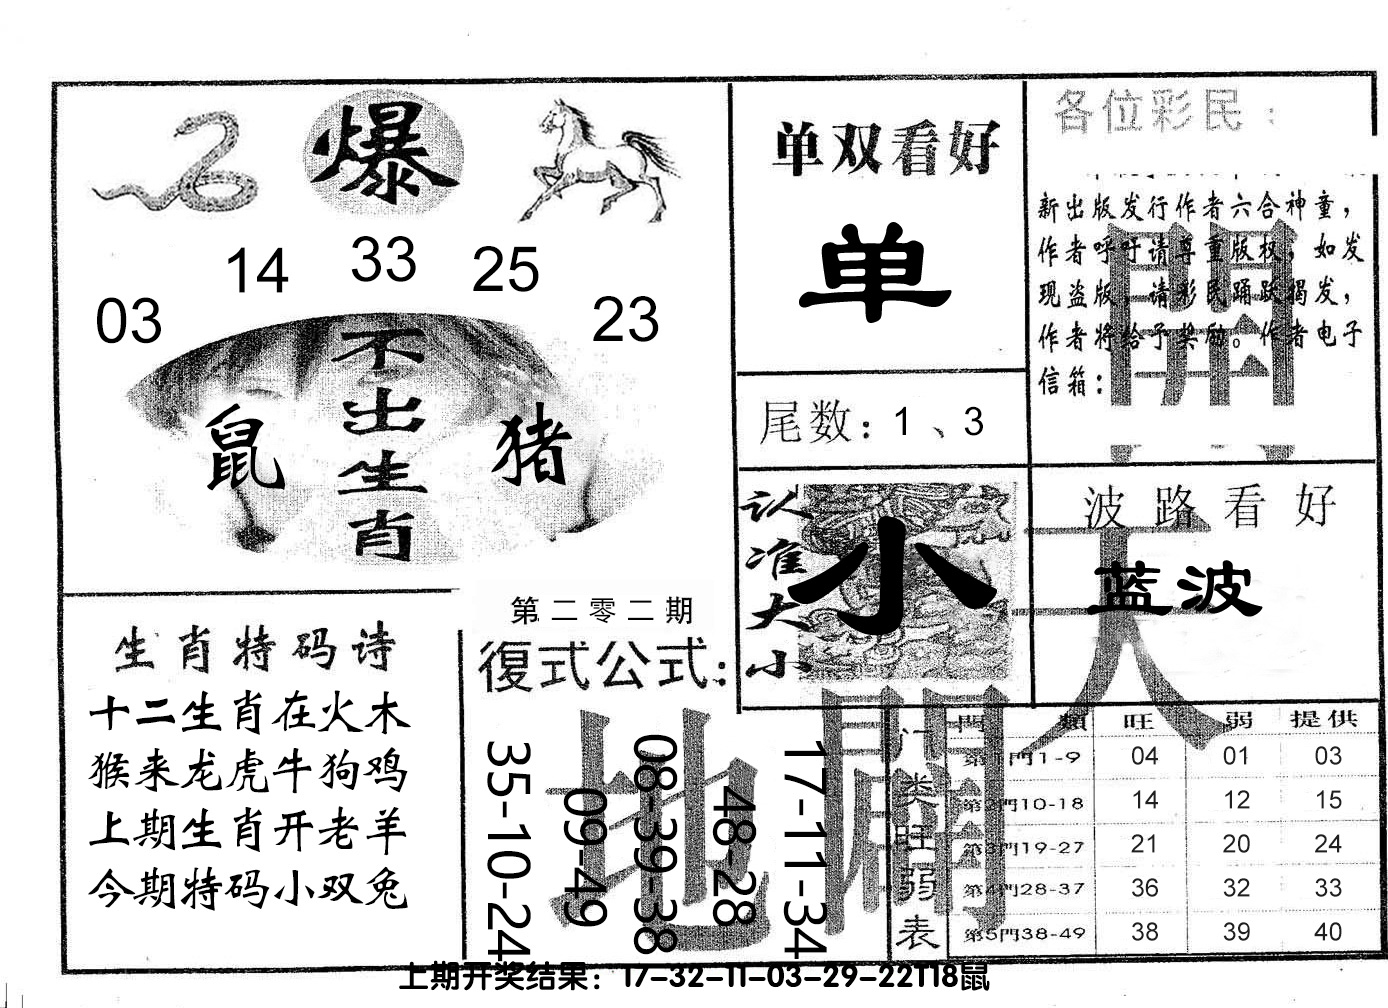 爆
03 14 33 25 23
不出生肖
鼠 猪
生肖特码诗
十二生肖在火木
猴来龙虎牛狗鸡
上期生肖开老羊
今期特码小双兔
第二零二期
復式公式:
35-10-24
09-49
08-39-38
48-28
17-11-34
单双看好
单
尾数: 1、3
认准大小
小
各位彩民:
新出版发行作者六合神童，
作者呼吁请尊重版权，如发
现盗版，请彩民踊跃揭发，
作者将给予奖励。作者电子
信箱:
波路看好
蓝波
天
地
開
门类旺弱表
門類 旺 弱 提供
第1門1-9 04 01 03
第2門10-18 14 12 15
第3門19-27 21 20 24
第4門28-37 36 32 33
第5門38-49 38 39 40
上期开奖结果：17-32-11-03-29-22T18鼠